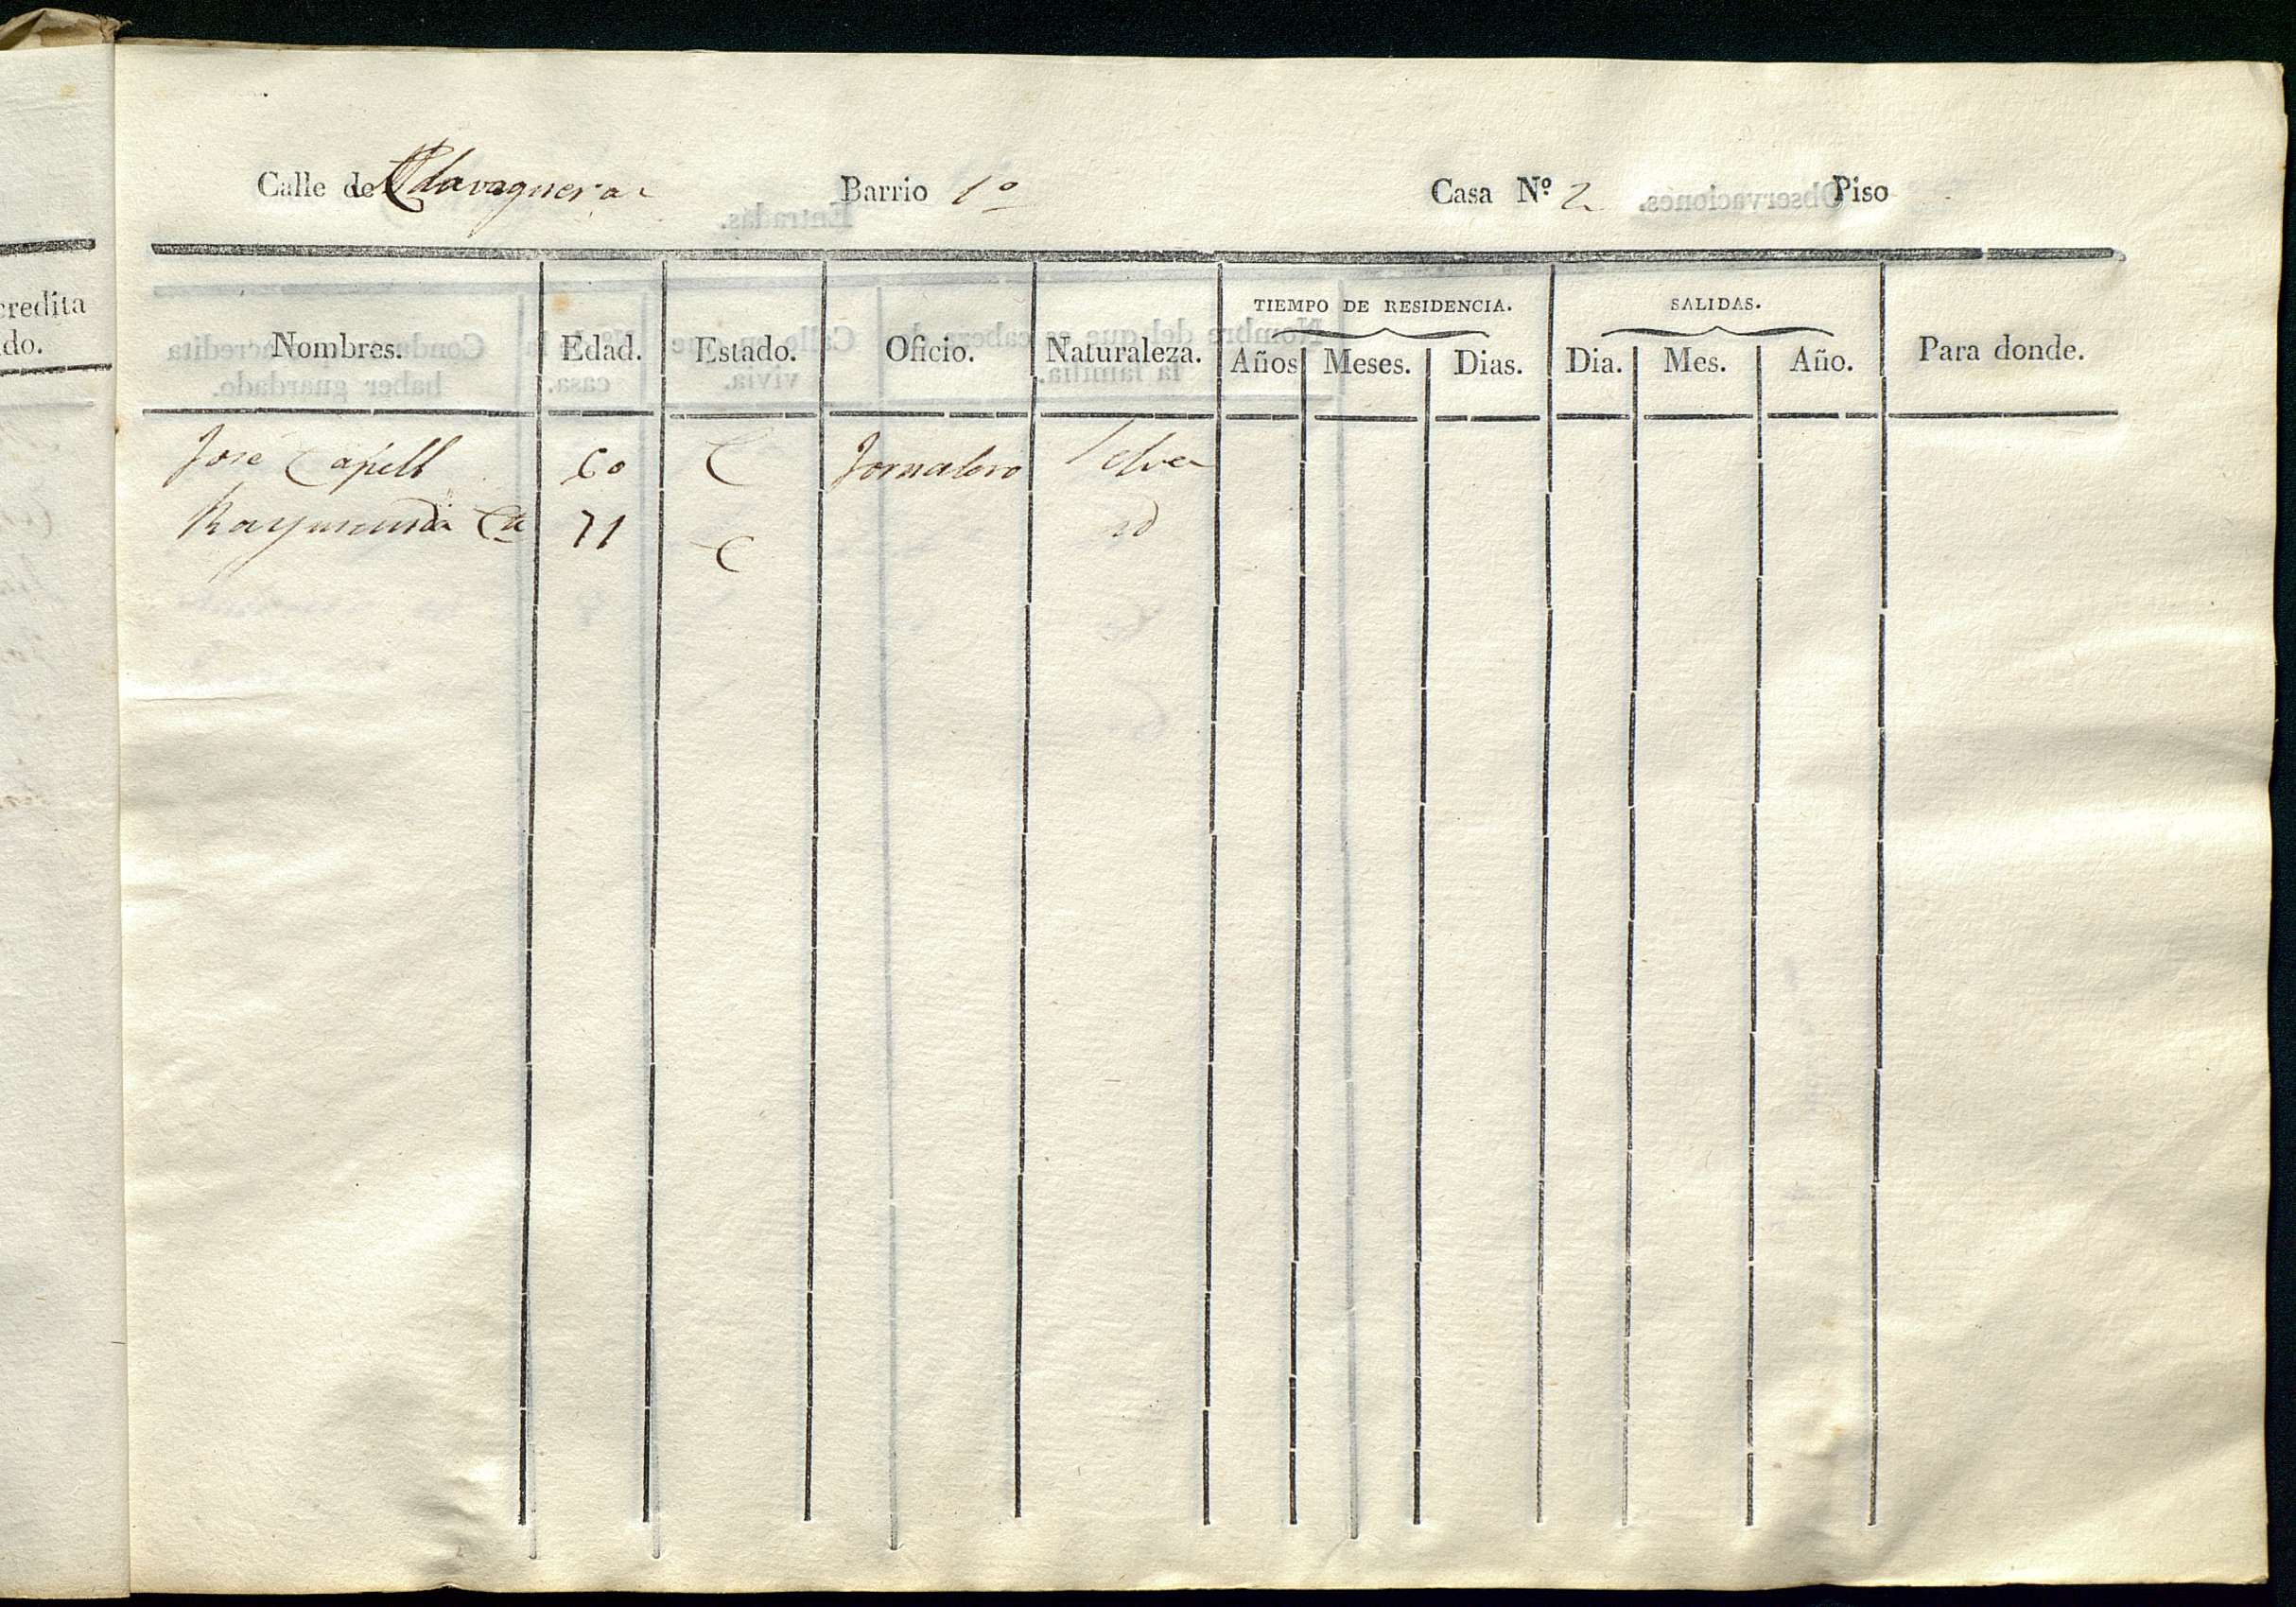 Calle de Clavaguera Barrio 1º Casa Nº 2 Piso
credita
do.
TIEMPO DE RESIDENCIA. SALIDAS.
Nombres. Edad. Estado. Oficio. Naturaleza. Años Meses. Dias. Dia. Mes. Año. Para donde.
Jose Capell 60 C Jornalero Selva
Raymunda Cª 71 C id